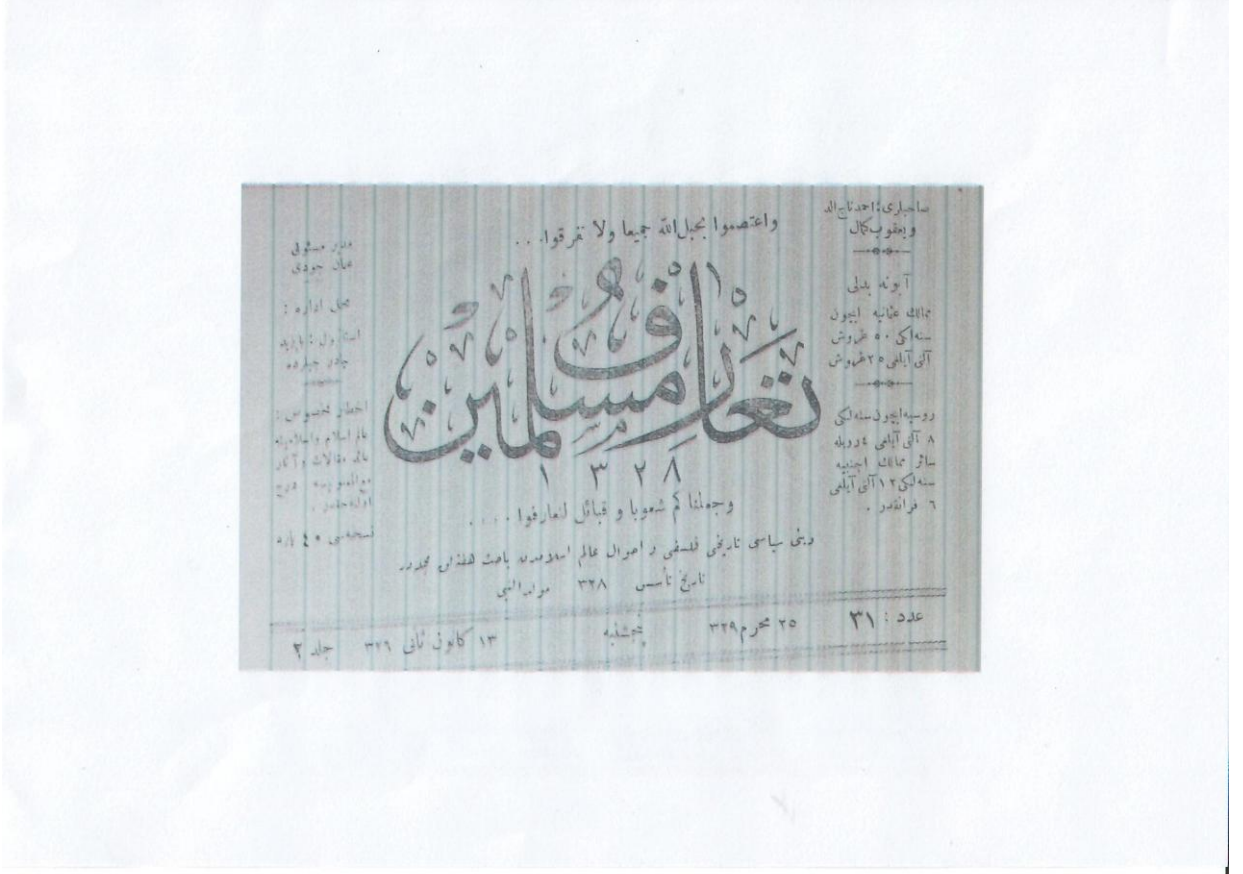 صاحبلری : احمد تاج الد
و یعقوب کمال
آبونه بدلی
ممالك عثمانیه ایچون
سنه لکی ٥٠ غروش
آلتی آیلغی ٢٥ غروش
روسیه ایچون سنه لکی
٨ آلتی آیلغی ٤ روبله
سائر ممالك اجنبیه
سنه لکی ١٢ آلتی آیلغی
٦ فرانقدر .
واعتصموا بحبل الله جمیعا ولا تفرقوا . . .
تعارف مسلمین
١٣٢٨
وجعلناکم شعوبا و قبائل لتعارفوا . . . .
دینی سیاسی تاریخی فلسفی و احوال عالم اسلامدن باحث هفته لق مجله در
تاریخ تأسیس ٣٢٨ مولد النبی
مدیر مسئولی
عثمان جودی
محل اداره :
استانبول : بایزید
اخطار مخصوص :
عالم اسلام و اسلامیته
مقالات و آثار
نسخه سی ٤٠ پاره
عدد : ٣١ ٢٥ محرم ٣٢٩ پنجشنبه ١٣ کانون ثانی ٣٢٦ جلد ٢